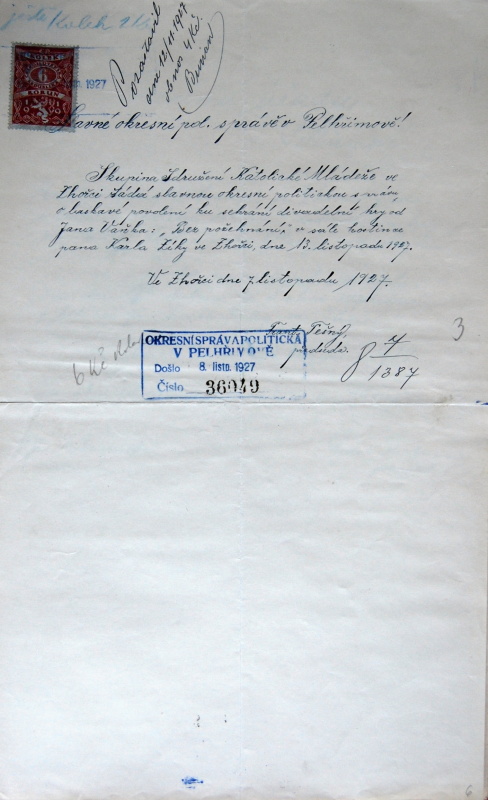 ještě Kolek 2 Kč
dne 12/11 1927
obnos 4 Kč.
KOLEK
6
KORUN
1927
Slavné okresní pol. správě v Pelhřimově!
Skupina Sdružení Katolické Mládeže ve
Zhoři žádá slavnou okresní politickou správu
o laskavé povolení ku sehrání divadelní hry od
Jana Váňka: „Bez požehnání,“ v sále hostince
pana Karla Ziky ve Zhoři, dne 13. listopadu 1927.
Ve Zhoři dne 7 listopadu 1927.
Frant. Těšný,
předseda.
3
6 Kč
OKRESNÍ SPRÁVA POLITICKÁ
V PELHŘIMOVĚ
Došlo 8. listp. 1927
Číslo 36049
8 7/1387
6